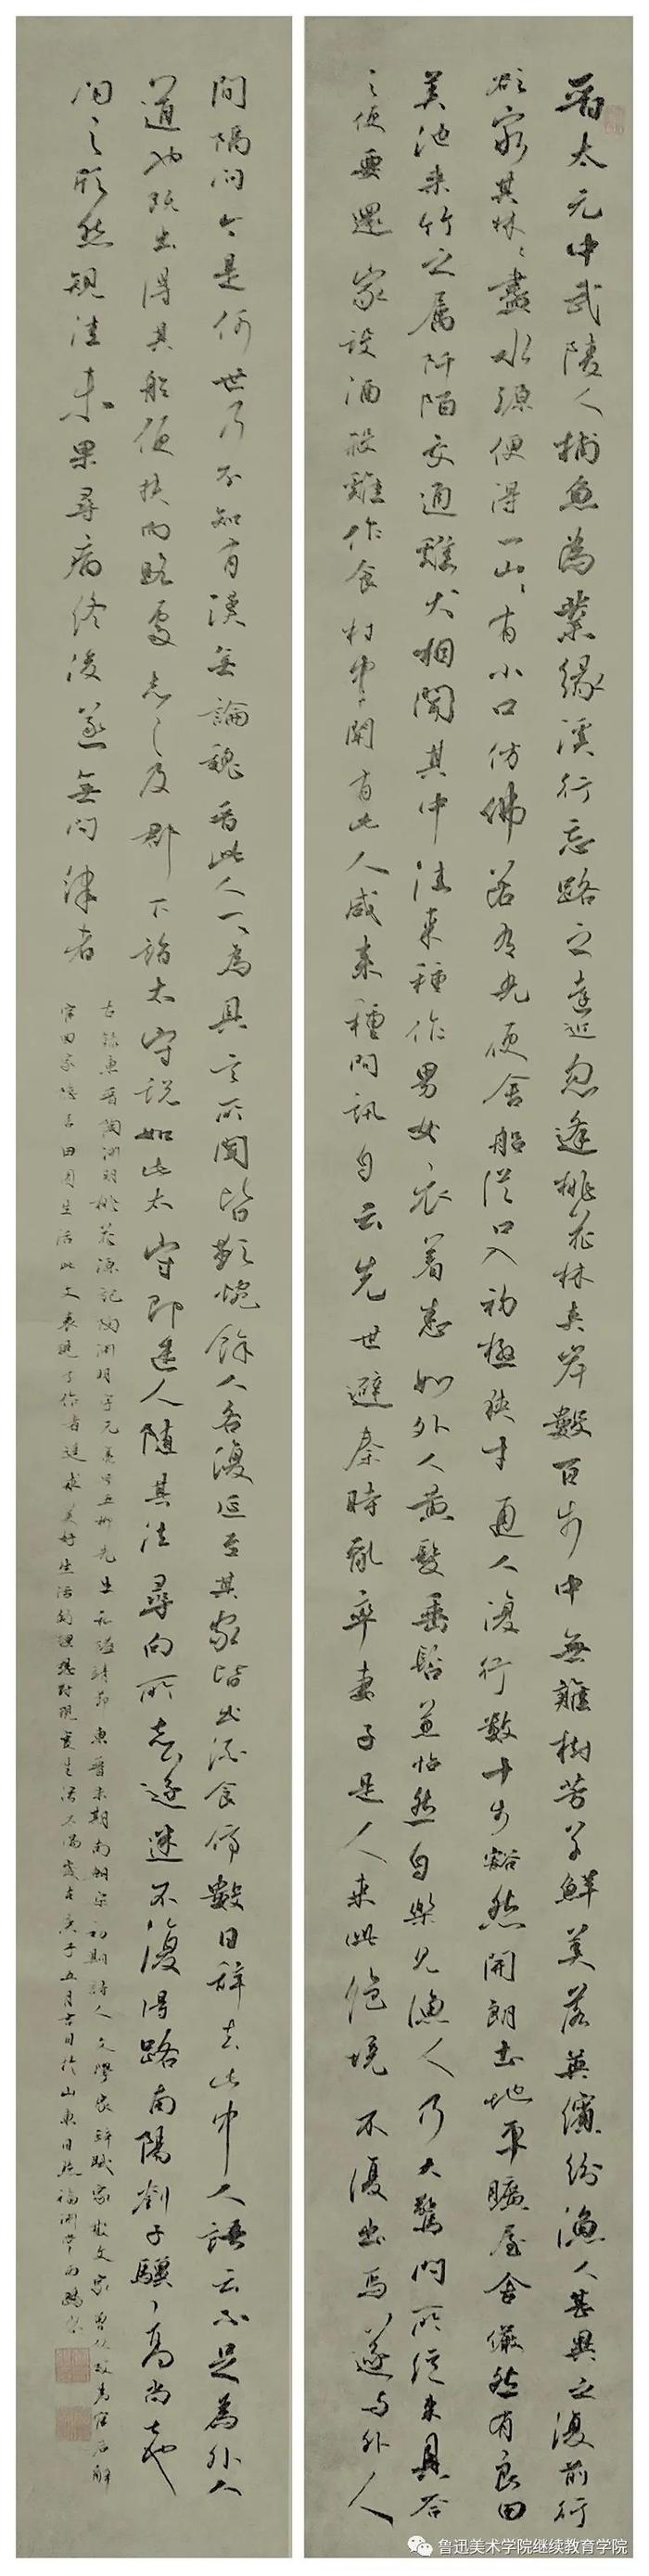 晋太元中武陵人捕魚為業緣溪行忘路之遠近忽逢桃花林夹岸數百步中無雜樹芳草鮮美落英繽紛漁人甚異之復前行
欲窮其林々盡水源便得一山々有小口仿佛若有光便舍船從口入初極狹才通人復行数十步豁然開朗土地平曠屋舍儼然有良田
美池桑竹之属阡陌交通雞犬相聞其中往来種作男女衣着悉如外人黄髮垂髫並怡然自樂見漁人乃大驚問所從来具答
之便要還家設酒殺雞作食村中聞有此人咸来種問訊自云先世避秦時亂率妻子邑人来此絕境不復出焉遂与外人
間隔問今是何世乃不知有漢無論魏晋此人一々為具言所聞皆歎惋餘人各復延至其家皆出酒食停數日辭去此中人語云不足為外人
道也既出得其船便扶向路處々志之及郡下詣太守説如此太守即遣人随其往尋向所志遂迷不復得路南陽劉子驥高尚士也
聞之欣然規往未果尋病終後遂無問津者
右錄東晋陶淵明桃花源記陶淵明字元亮号五柳先生私諡靖節東晋末期南朝宋初期詩人文學家辭賦家散文家曾任 為官后辭
官田家 田園生活此文表現了作者追求美好生活的理想對現實生活不滿歲在庚子五月吉日於山東日照
鲁迅美术学院继续教育学院